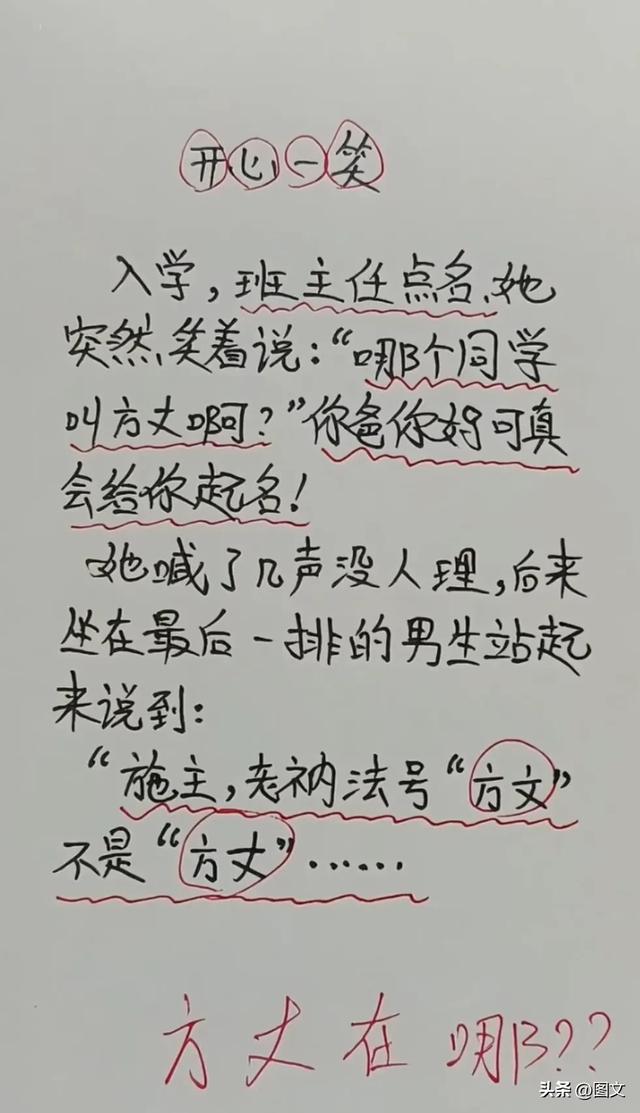 开心一笑
入学，班主任点名、她
突然笑着说：“哪个同学
叫方丈啊？”你爸你妈可真
会给你起名！
她喊了几声没人理，后来
坐在最后一排的男生站起
来说到：
“施主，老衲法号“方文”
不是“方丈”······
方丈在哪??
头条 @图文